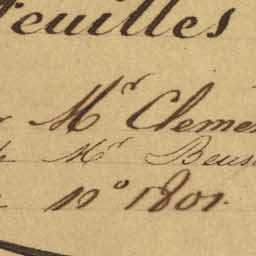 Feuilles
Mr Clemen
Mr Beus
no 1801.